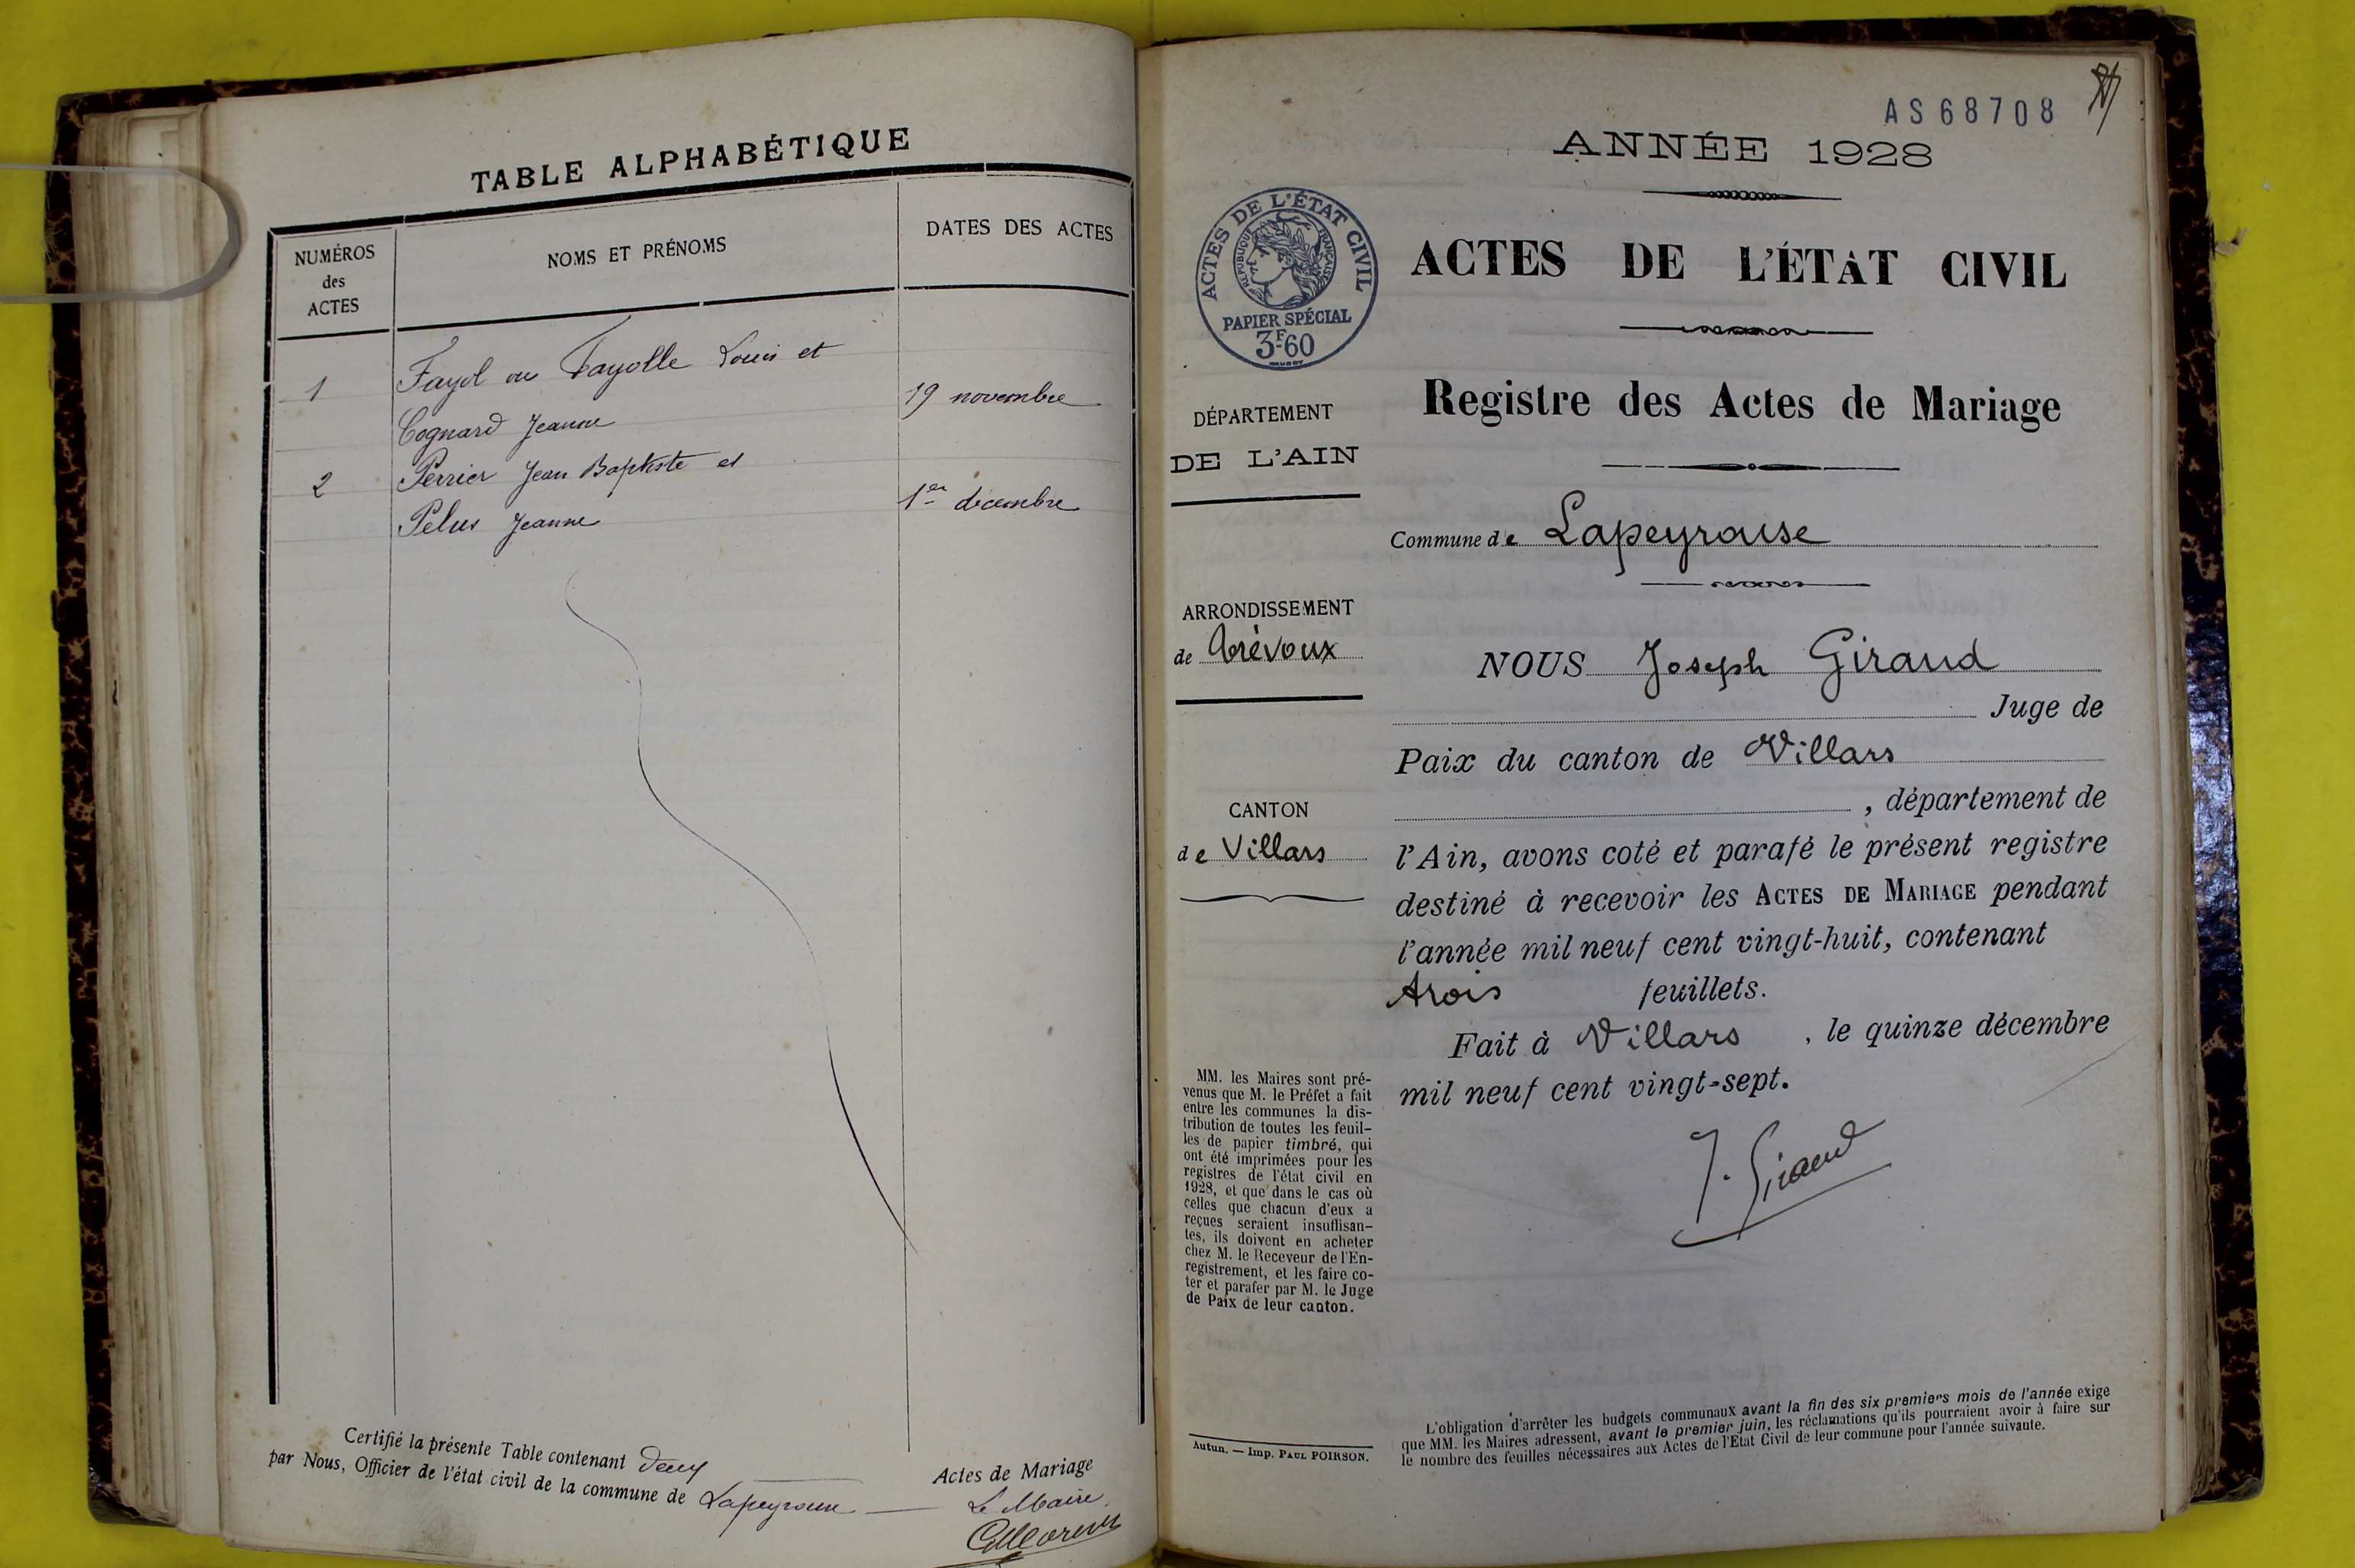 TABLE ALPHABÉTIQUE
NUMÉROS
des
ACTES
NOMS ET PRÉNOMS
DATES DES ACTES
1
Fayol ou Fayolle Louis et
Cognard Jeanne
19 novembre
2
Perrier Jean Baptiste et
Pelus Jeanne
1er décembre
Certifié la présente Table contenant deux
Actes de Mariage
par Nous, Officier de l'état civil de la commune de Lapeyrouse
Le Maire,
AS68708
ANNÉE 1928
ACTES DE L'ÉTAT CIVIL
RÉPUBLIQUE FRANÇAISE
PAPIER SPÉCIAL
3F60
ACTES DE L'ÉTAT CIVIL
Registre des Actes de Mariage
DÉPARTEMENT
DE L'AIN
Commune de Lapeyrouse
ARRONDISSEMENT
de Trévoux
CANTON
de Villars
NOUS Joseph Giraud
Juge de
Paix du canton de Villars
, département de
l'Ain, avons coté et parafé le présent registre
destiné à recevoir les ACTES DE MARIAGE pendant
l'année mil neuf cent vingt-huit, contenant
trois feuillets.
Fait à Villars , le quinze décembre
mil neuf cent vingt-sept.
J. Giraud
MM. les Maires sont pré-
venus que M. le Préfet a fait
entre les communes la dis-
tribution de toutes les feuil-
les de papier timbré, qui
ont été imprimées pour les
registres de l'état civil en
1928, et que dans le cas où
celles que chacun d'eux a
reçues seraient insuffisan-
tes, ils doivent en acheter
chez M. le Receveur de l'En-
registrement, et les faire co-
ter et parafer par M. le Juge
de Paix de leur canton.
Autun. — Imp. PAUL POIRSON.
L'obligation d'arrêter les budgets communaux avant la fin des six premiers mois de l'année exige
que MM. les Maires adressent, avant le premier juin, les réclamations qu'ils pourraient avoir à faire sur
le nombre des feuilles nécessaires aux Actes de l'Etat Civil de leur commune pour l'année suivante.